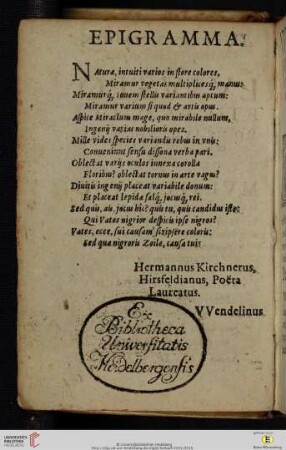 EPIGRAMMA.
NAturæ, intuiti varios in flore colores,
Miramur vegetas multiplicesq́, manus:
Miramurq́, iouem stellis variantibus aptum:
Miramur varium si quod & artis opus.
Aspice Miraclum mage, quo mirabile nullum,
Ingenij varias nobilioris opes.
Mille vides species variandis rebus in vnis:
Conueniunt sensu dissona verba pari.
Oblectat varijs oculos innexa corolla
Floribus? oblectat tornus in arte vagus?
Diuitis ingenij placeat variabile donum:
Et placeat lepidæ salq́, jocusq́, rei.
Sed quis, au, jocus hic? quis tu, quis candidus iste:
Qui Vates nigrior despicis ipse nigros?
Vates, ecce, sui causam scripsere coloris:
Sed qua nigroris Zoile, causa tui?
Hermannus Kirchnerus,
Hirsfeldianus, Poëta
Laureatus.
VVendelinus
Ex
Bibliotheca
Universitatis
Heidelbergensis
© Universitätsbibliothek Heidelberg